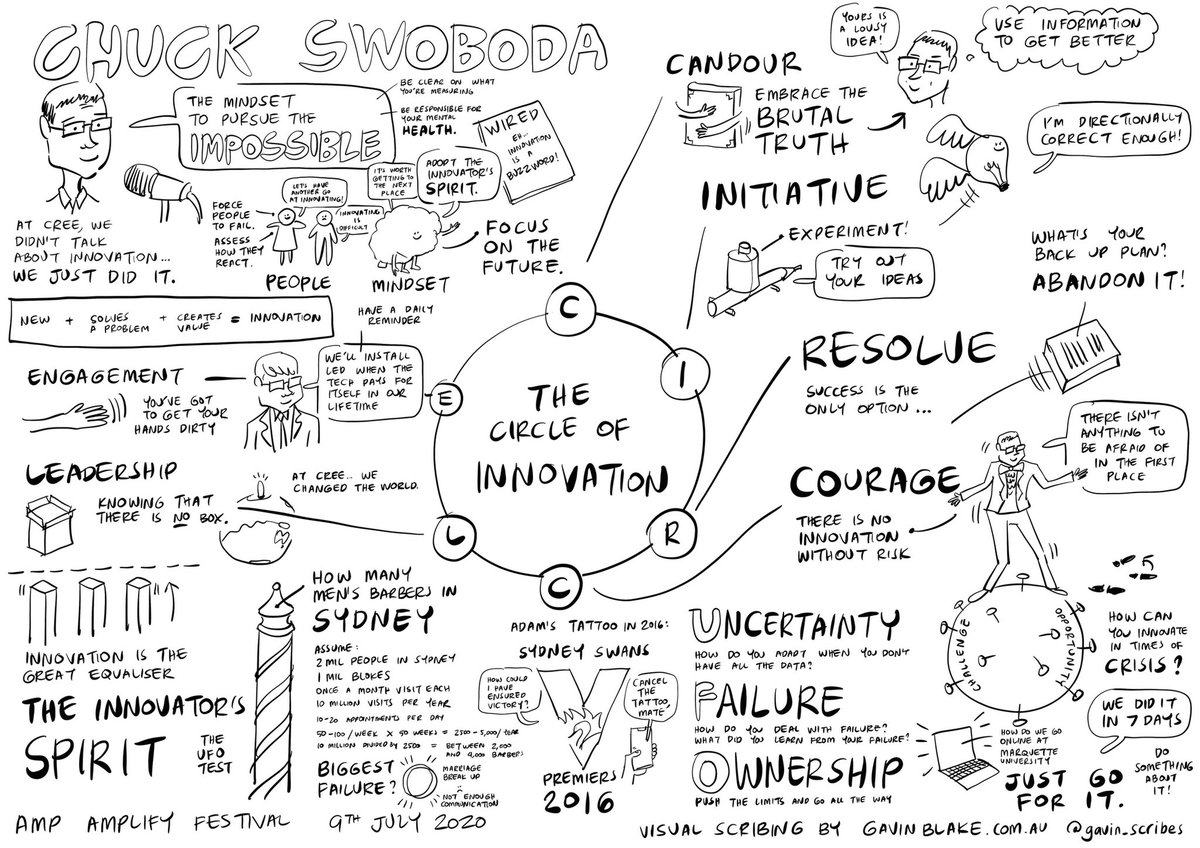 CHUCK SWOBODA
THE MINDSET
TO PURSUE THE
IMPOSSIBLE
BE CLEAR ON WHAT
YOU'RE MEASURING
BE RESPONSIBLE FOR
YOUR MENTAL
HEALTH.
WIRED
EH...
INNOVATION
IS A
BUZZWORD!
ADOPT THE
INNOVATOR'S
SPIRIT.
IT'S WORTH
GETTING TO
THE NEXT
PLACE
LET'S HAVE
ANOTHER GO
AT INNOVATING!
INNOVATING
IS
DIFFICULT
FORCE
PEOPLE
TO FAIL.
ASSESS
HOW THEY
REACT.
PEOPLE
MINDSET
FOCUS
ON THE
FUTURE.
HAVE A DAILY
REMINDER
AT CREE, WE
DIDN'T TALK
ABOUT INNOVATION...
WE JUST DID IT.
NEW + SOLVES A PROBLEM + CREATES VALUE = INNOVATION
ENGAGEMENT
YOU'VE GOT
TO GET YOUR
HANDS DIRTY
WE'LL INSTALL
LED WHEN THE
TECH PAYS FOR
ITSELF IN OUR
LIFETIME
LEADERSHIP
KNOWING THAT
THERE IS NO BOX.
AT CREE.. WE
CHANGED THE WORLD.
INNOVATION IS THE
GREAT EQUALISER
THE INNOVATOR'S
SPIRIT
THE
UFO
TEST
HOW MANY
MEN'S BARBERS IN
SYDNEY
ASSUME:
2 MIL PEOPLE IN SYDNEY
1 MIL BLOKES
ONCE A MONTH VISIT EACH
10 MILLION VISITS PER YEAR
10-20 APPOINTMENTS PER DAY
50-100/WEEK X 50 WEEKS = 2500-5,000/YEAR
10 MILLION DIVIDED BY 2500 = BETWEEN 2,000
AND 4,000 BARBERS
BIGGEST
FAILURE?
MARRIAGE
BREAK UP
NOT ENOUGH
COMMUNICATION
THE
CIRCLE OF
INNOVATION
C
I
R
C
L
E
CANDOUR
EMBRACE THE
BRUTAL
TRUTH
YOURS IS
A LOUSY
IDEA!
USE INFORMATION
TO GET BETTER
I'M DIRECTIONALLY
CORRECT ENOUGH!
INITIATIVE
EXPERIMENT!
TRY OUT
YOUR IDEAS
WHAT'S YOUR
BACK UP PLAN?
ABANDON IT!
RESOLVE
SUCCESS IS THE
ONLY OPTION ...
COURAGE
THERE IS NO
INNOVATION
WITHOUT RISK
THERE ISN'T
ANYTHING TO
BE AFRAID OF
IN THE FIRST
PLACE
CHALLENGE
OPPORTUNITY
HOW CAN
YOU INNOVATE
IN TIMES OF
CRISIS?
ADAM'S TATTOO IN 2016:
SYDNEY SWANS
HOW COULD
I HAVE
ENSURED
VICTORY?
CANCEL
THE
TATTOO,
MATE
PREMIERS
2016
UNCERTAINTY
HOW DO YOU ADAPT WHEN YOU DON'T
HAVE ALL THE DATA?
FAILURE
HOW DO YOU DEAL WITH FAILURE?
WHAT DID YOU LEARN FROM YOUR FAILURE?
OWNERSHIP
PUSH THE LIMITS AND GO ALL THE WAY
HOW DO WE GO
ONLINE AT
MARQUETTE
UNIVERSITY
WE DID IT
IN 7 DAYS
JUST GO
FOR IT.
DO
SOMETHING
ABOUT
IT!
AMP AMPLIFY FESTIVAL 9TH JULY 2020
VISUAL SCRIBING BY GAVINBLAKE.COM.AU @gavin_scribes